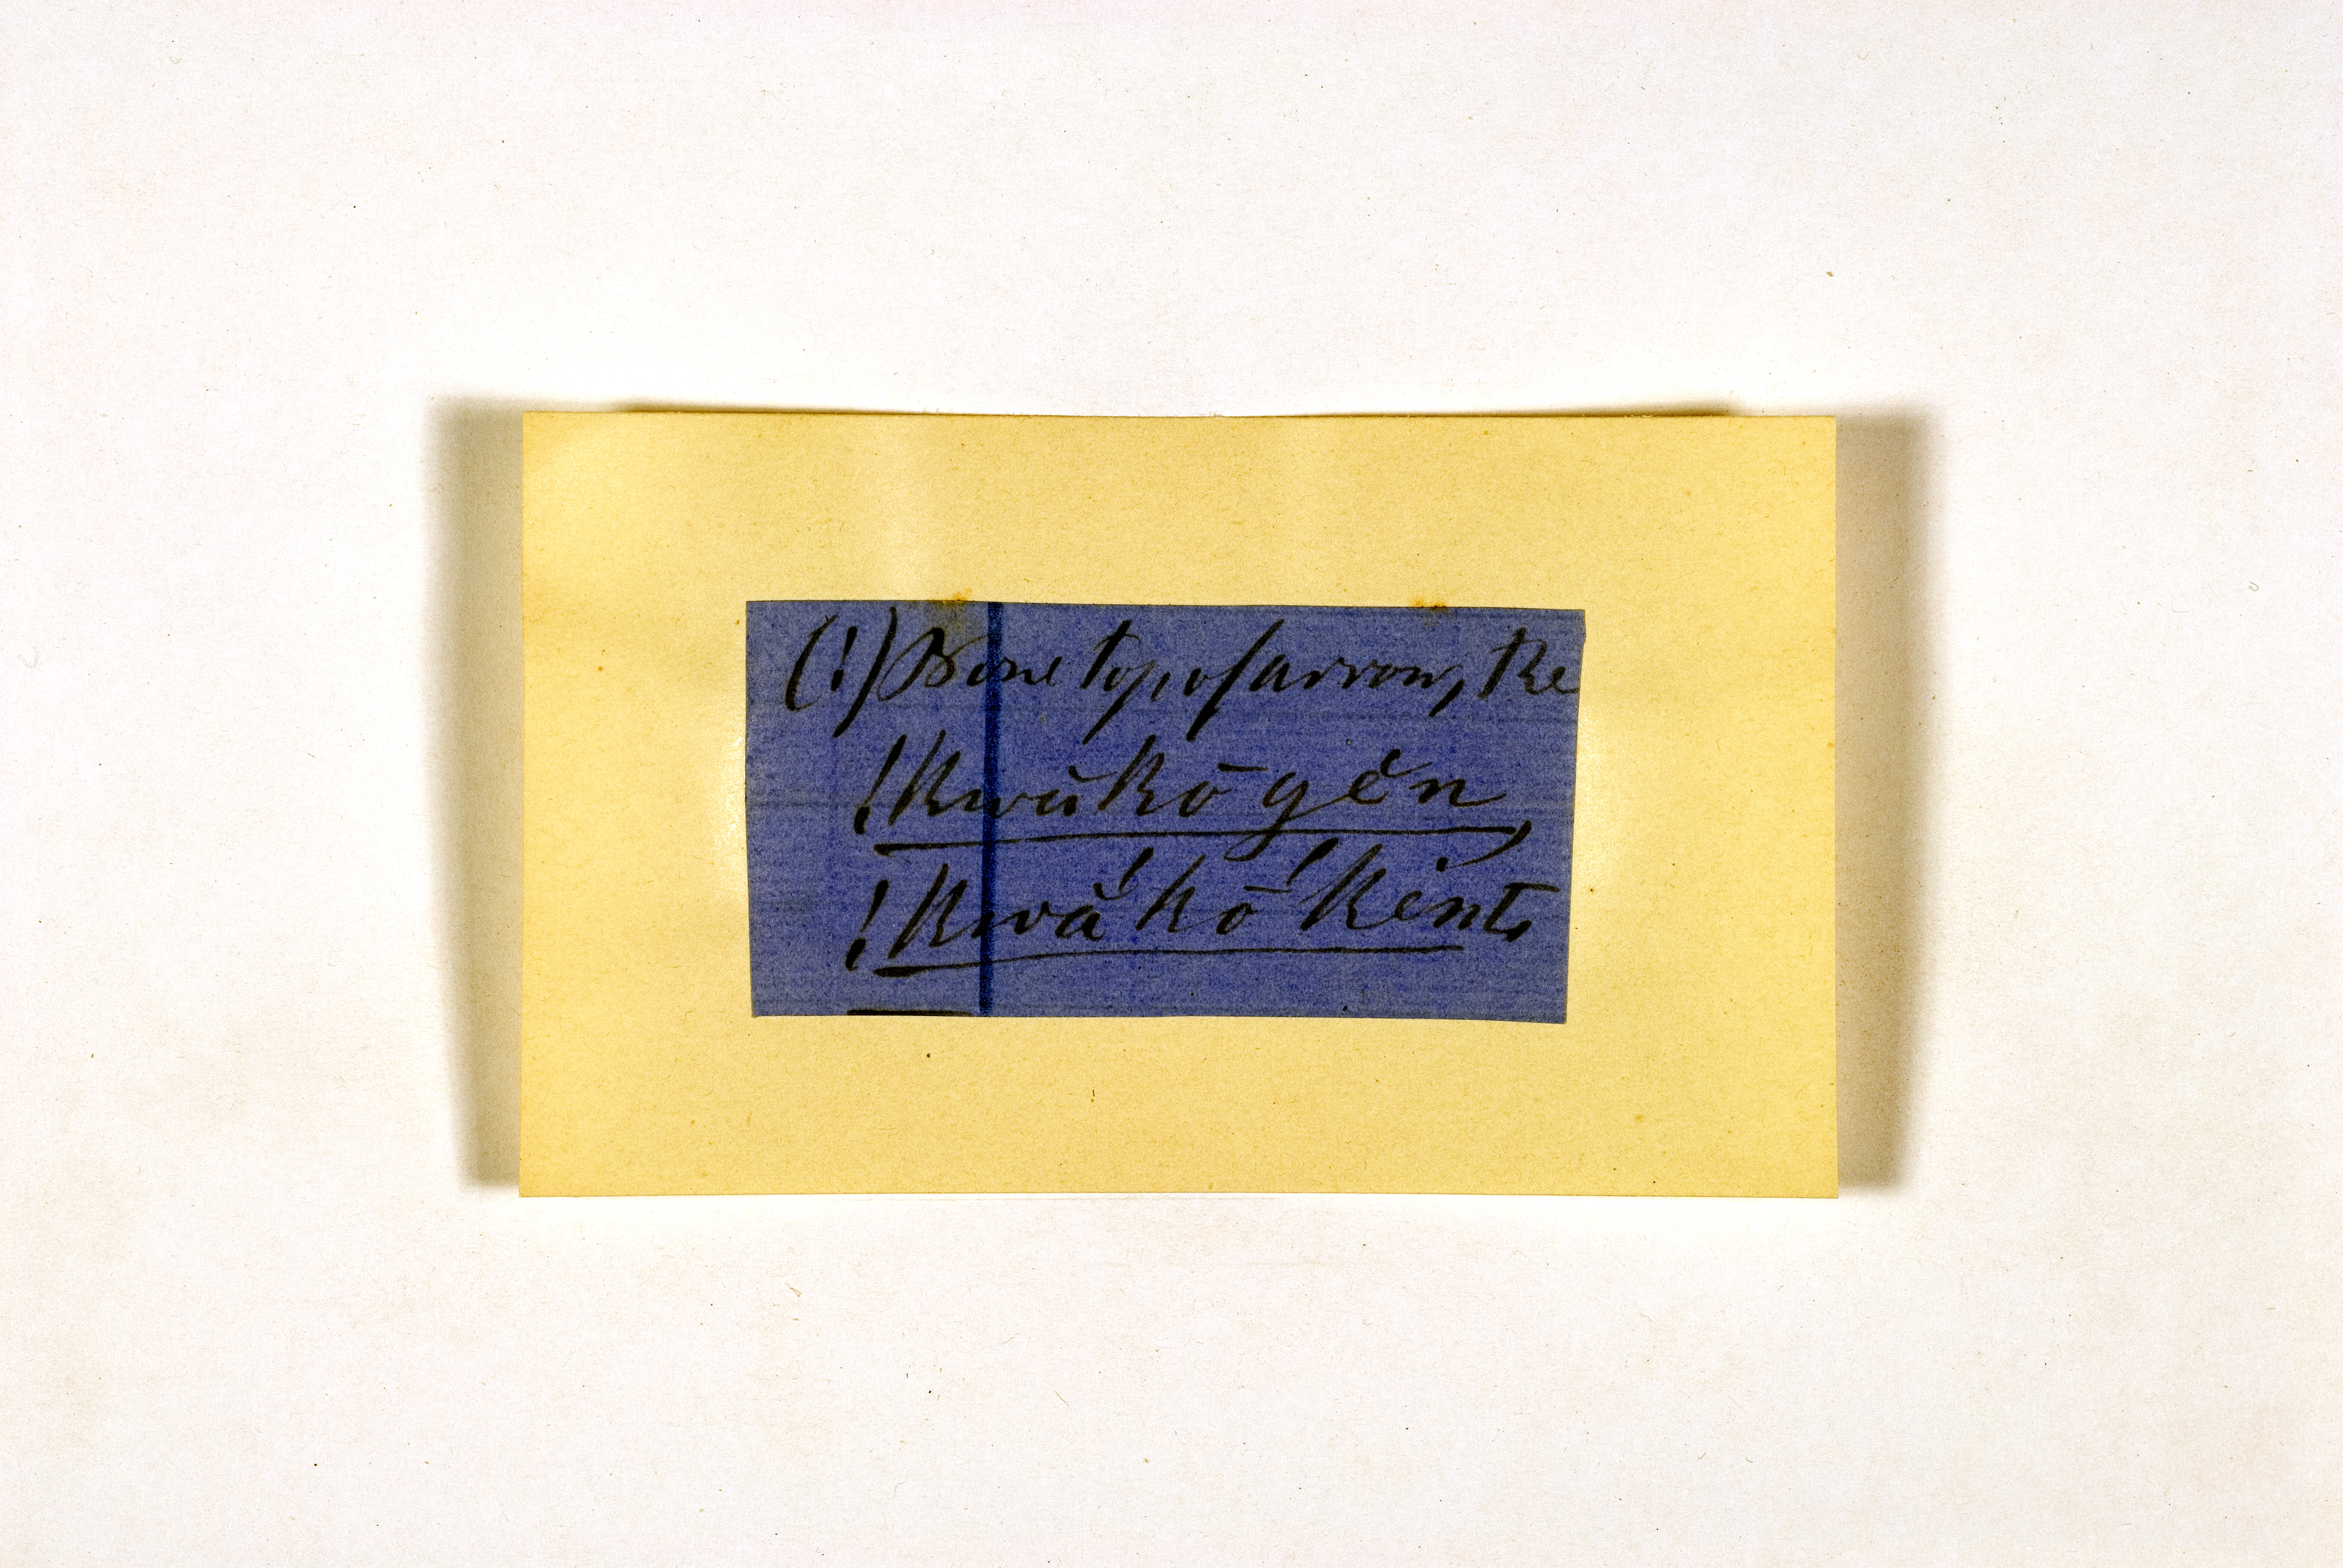 (!) Bone top, of arrow, the
!kwŭkō gĕn,
!kwă'kō'kĕnt.